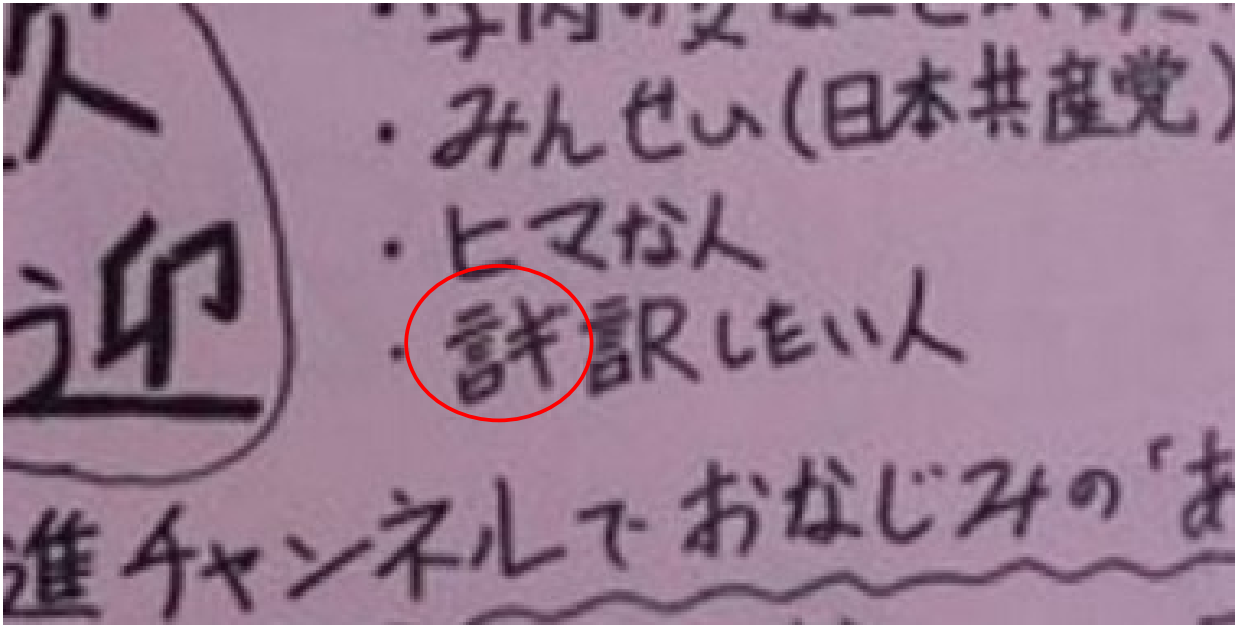 迎
・みんせい(日本共産党)
・ヒマな人
・言ギ言Rしたい人
進チャンネルでおなじみの「あ